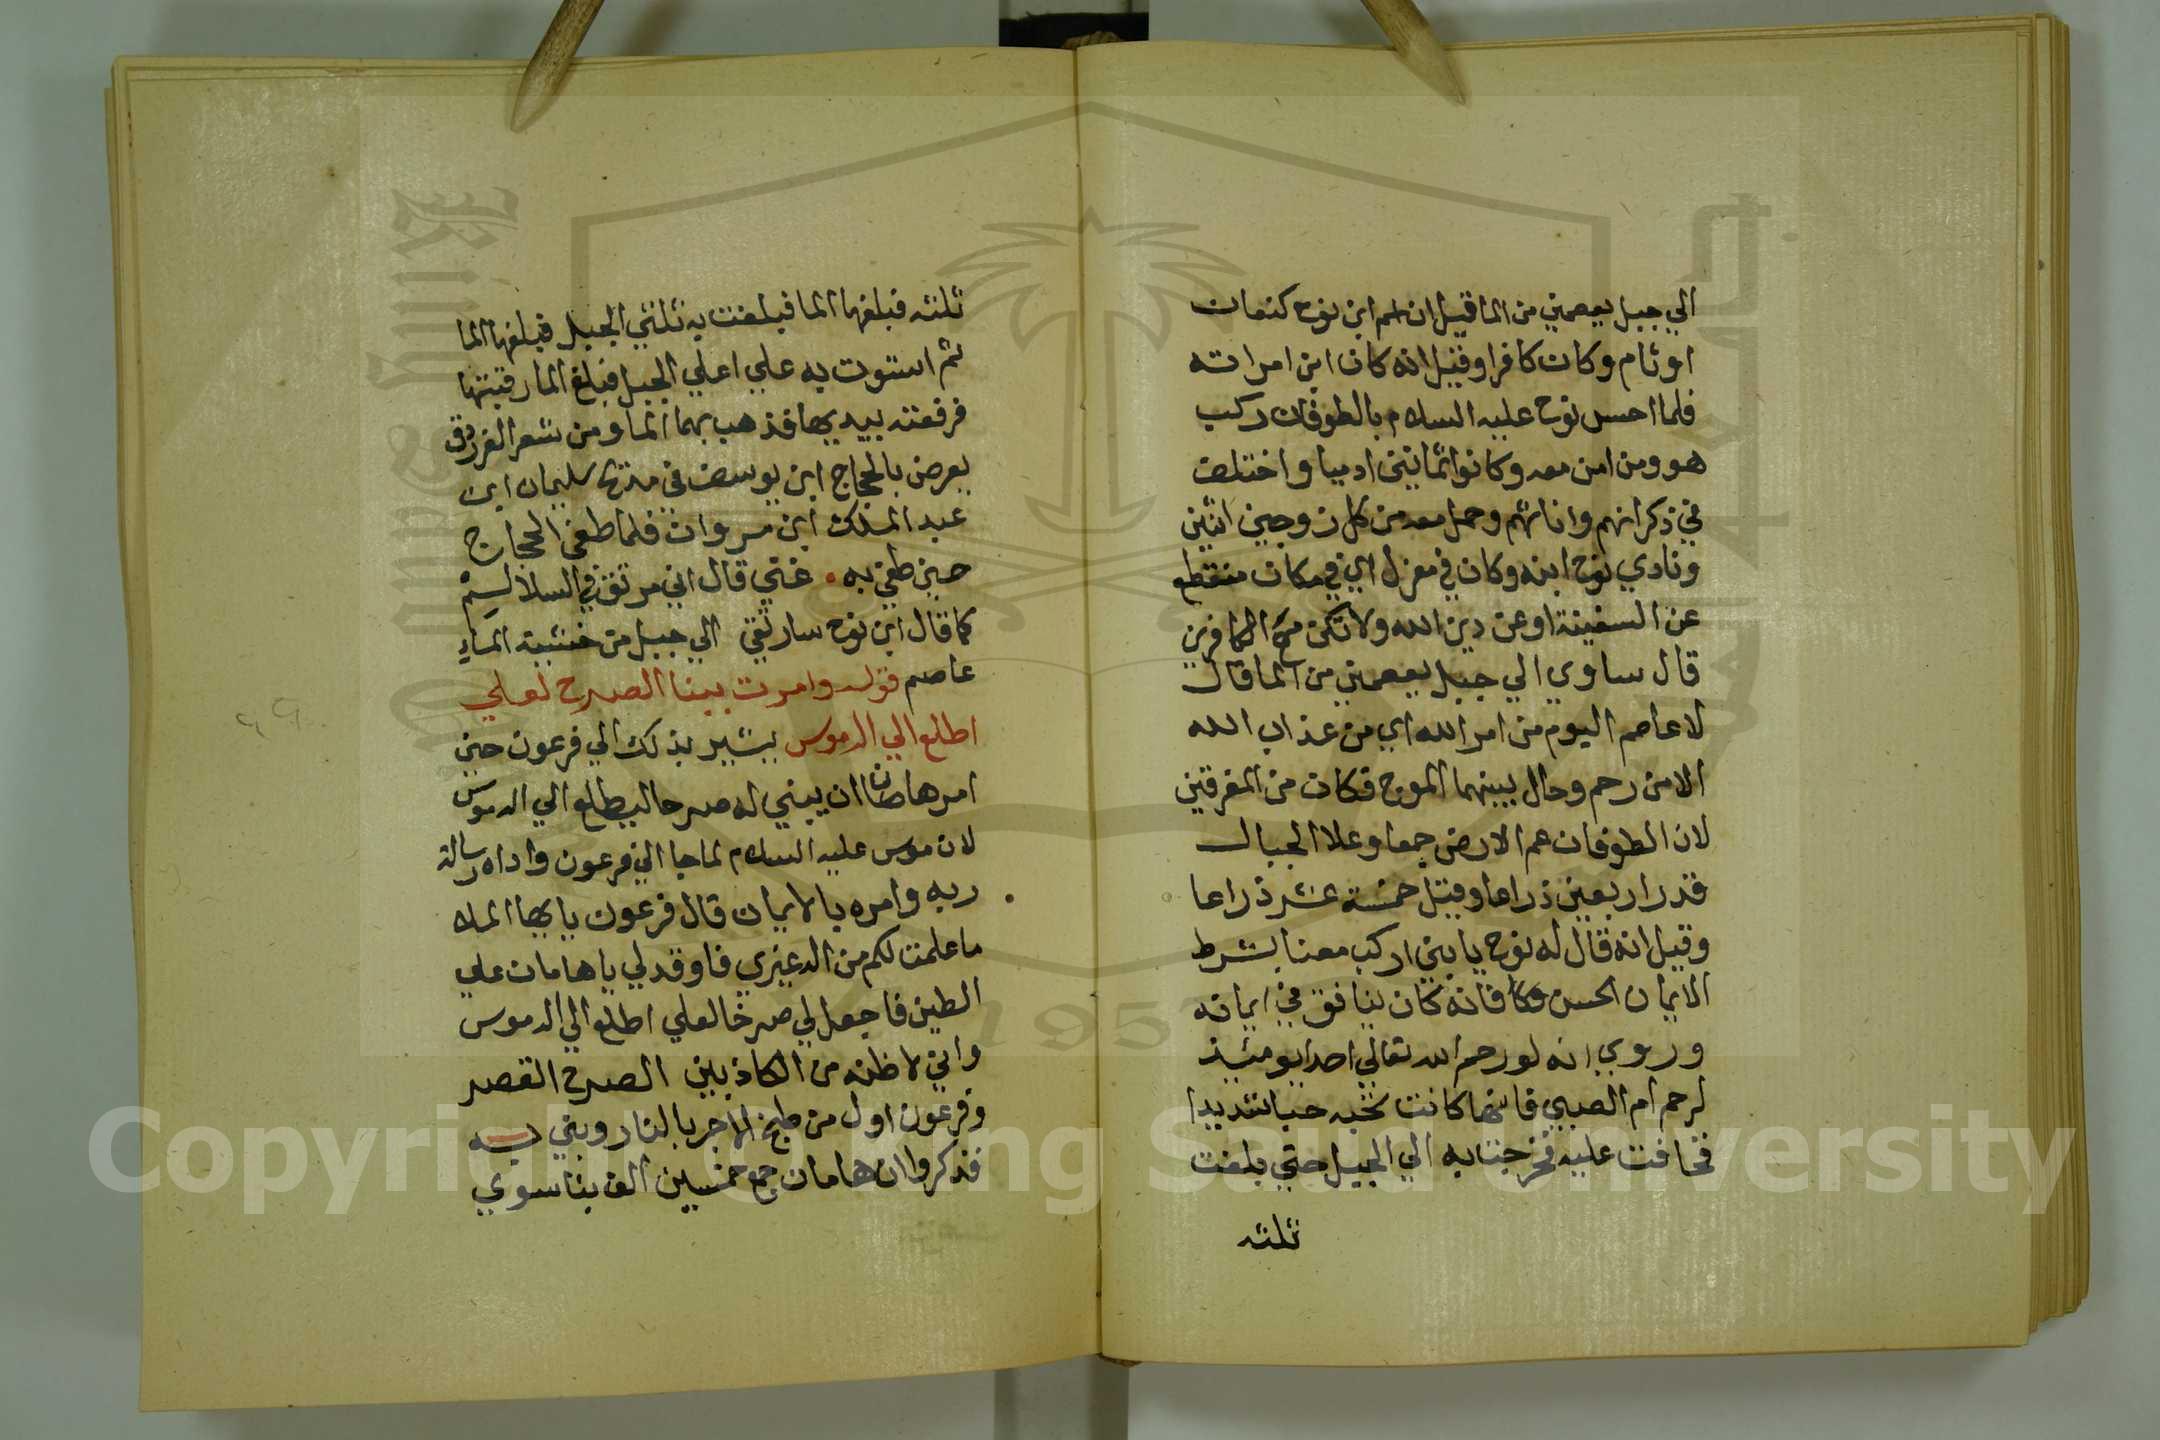 الي جبل يعصمني من الما قيل ان اسم ابن نوح كنعان
او ثام وكان كافرا وقيل انه كان ابن امراته
فلما احس نوح عليه السلام بالطوفان ركب
هو ومن امن معه وكانوا ثمانين ادميا واختلف
في ذكرانهم واناثهم وحمل معه من كل زوجين اثنين
ونادي نوح ابنه وكان في معزل اي في مكان منقطع
عن السفينة او عن دين الله ولا تكن مع الكافرين
قال ساوي الي جبل يعصمني من الما قال
لا عاصم اليوم من امر الله اي من عذاب الله
الا من رحم وحال بينهما الموج فكان من المغرقين
لان الطوفان عم الارض جمعا وعلا الجبال
قدر اربعين ذراعا وقيل خمسة عشر ذراعا
وقيل انه قال له نوح يا بني اركب معنا بشرط
الايمان الحسن فانه كان ينافق في ايمانه
وروي انه لو رحم الله تعالي احدا يومئذ
لرحم ام الصبي فانها كانت تحبه حبا شديدا
فخافت عليه فخرجت به الي الجبل حتي بلغت
ثلثه
ثلثه فبلغها الما فبلغت به ثلثي الجبل فبلغها الما
ثم استوت به علي اعلي الجبل فبلغ الما رقبتها
فرفعته بيديها فذهب بهما الما ومن شعر الفرزدق
يعرض بالحجاج ابن يوسف في مدة سليمان ابن
عبد الملك ابن مروان فلما طغي الحجاج
حين طغي به غني قال اني مرتق في السلاليم
كما قال ابن نوح سارتقي الي جبل من خشية الماء
عاصم قوله وامرت ببنا الصرح لعلي
اطلع الي الدموس يشير بذلك الي فرعون حين
امر هامان ان يبني له صرحا ليطلع الي الدموس
لان موسي عليه السلام لما جا الي فرعون واداه رسالة
ربه وامره بالايمان قال فرعون يا يها الملا
ما علمت لكم من اله غيري فاوقد لي يا هامان علي
الطين فاجعل لي صرحا لعلي اطلع الي اله موسي
واني لاظنه من الكاذبين الصرح القصر
وفرعون اول من طبخ الاجر بالنار وبني به
فذكروا ان هامان جمع خمسين الف بنا سوي
King Saud University
1957
Copyright © King Saud University